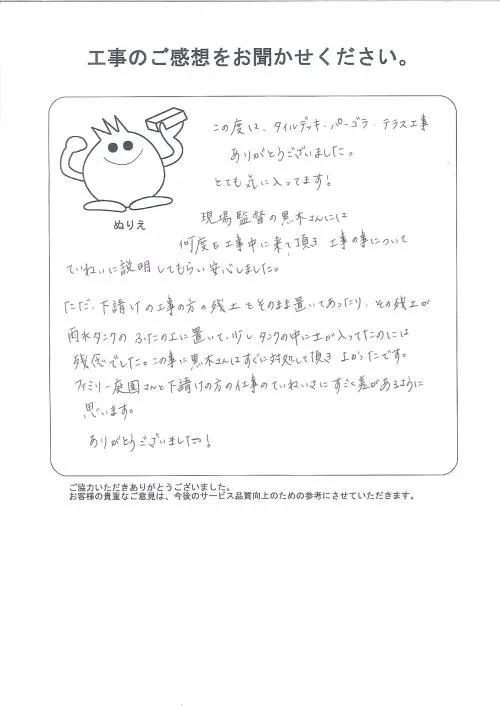 工事のご感想をお聞かせください。
この度は、タイルデッキ・パーゴラ・テラス工事
ありがとうございました。
とても気に入ってます!
ぬりえ
現場監督の黒木さんには
何度も工事中に来て頂き 工事の事について
ていねいに説明してもらい安心しました。
ただ、下請けの工事の方の残土をそのまま置いてあったり、その残土が
雨水タンクの ふたの上に置いて、少し タンクの中に土が入ってたのには
残念でした。この事に黒木さんはすぐに対処して頂き よかったです。
ファミリー庭園さんと下請けの方の仕事のていねいさに すごく差があるように
思います。
ありがとうございました!
ご協力いただきありがとうございました。
お客様の貴重なご意見は、今後のサービス品質向上のための参考にさせていただきます。